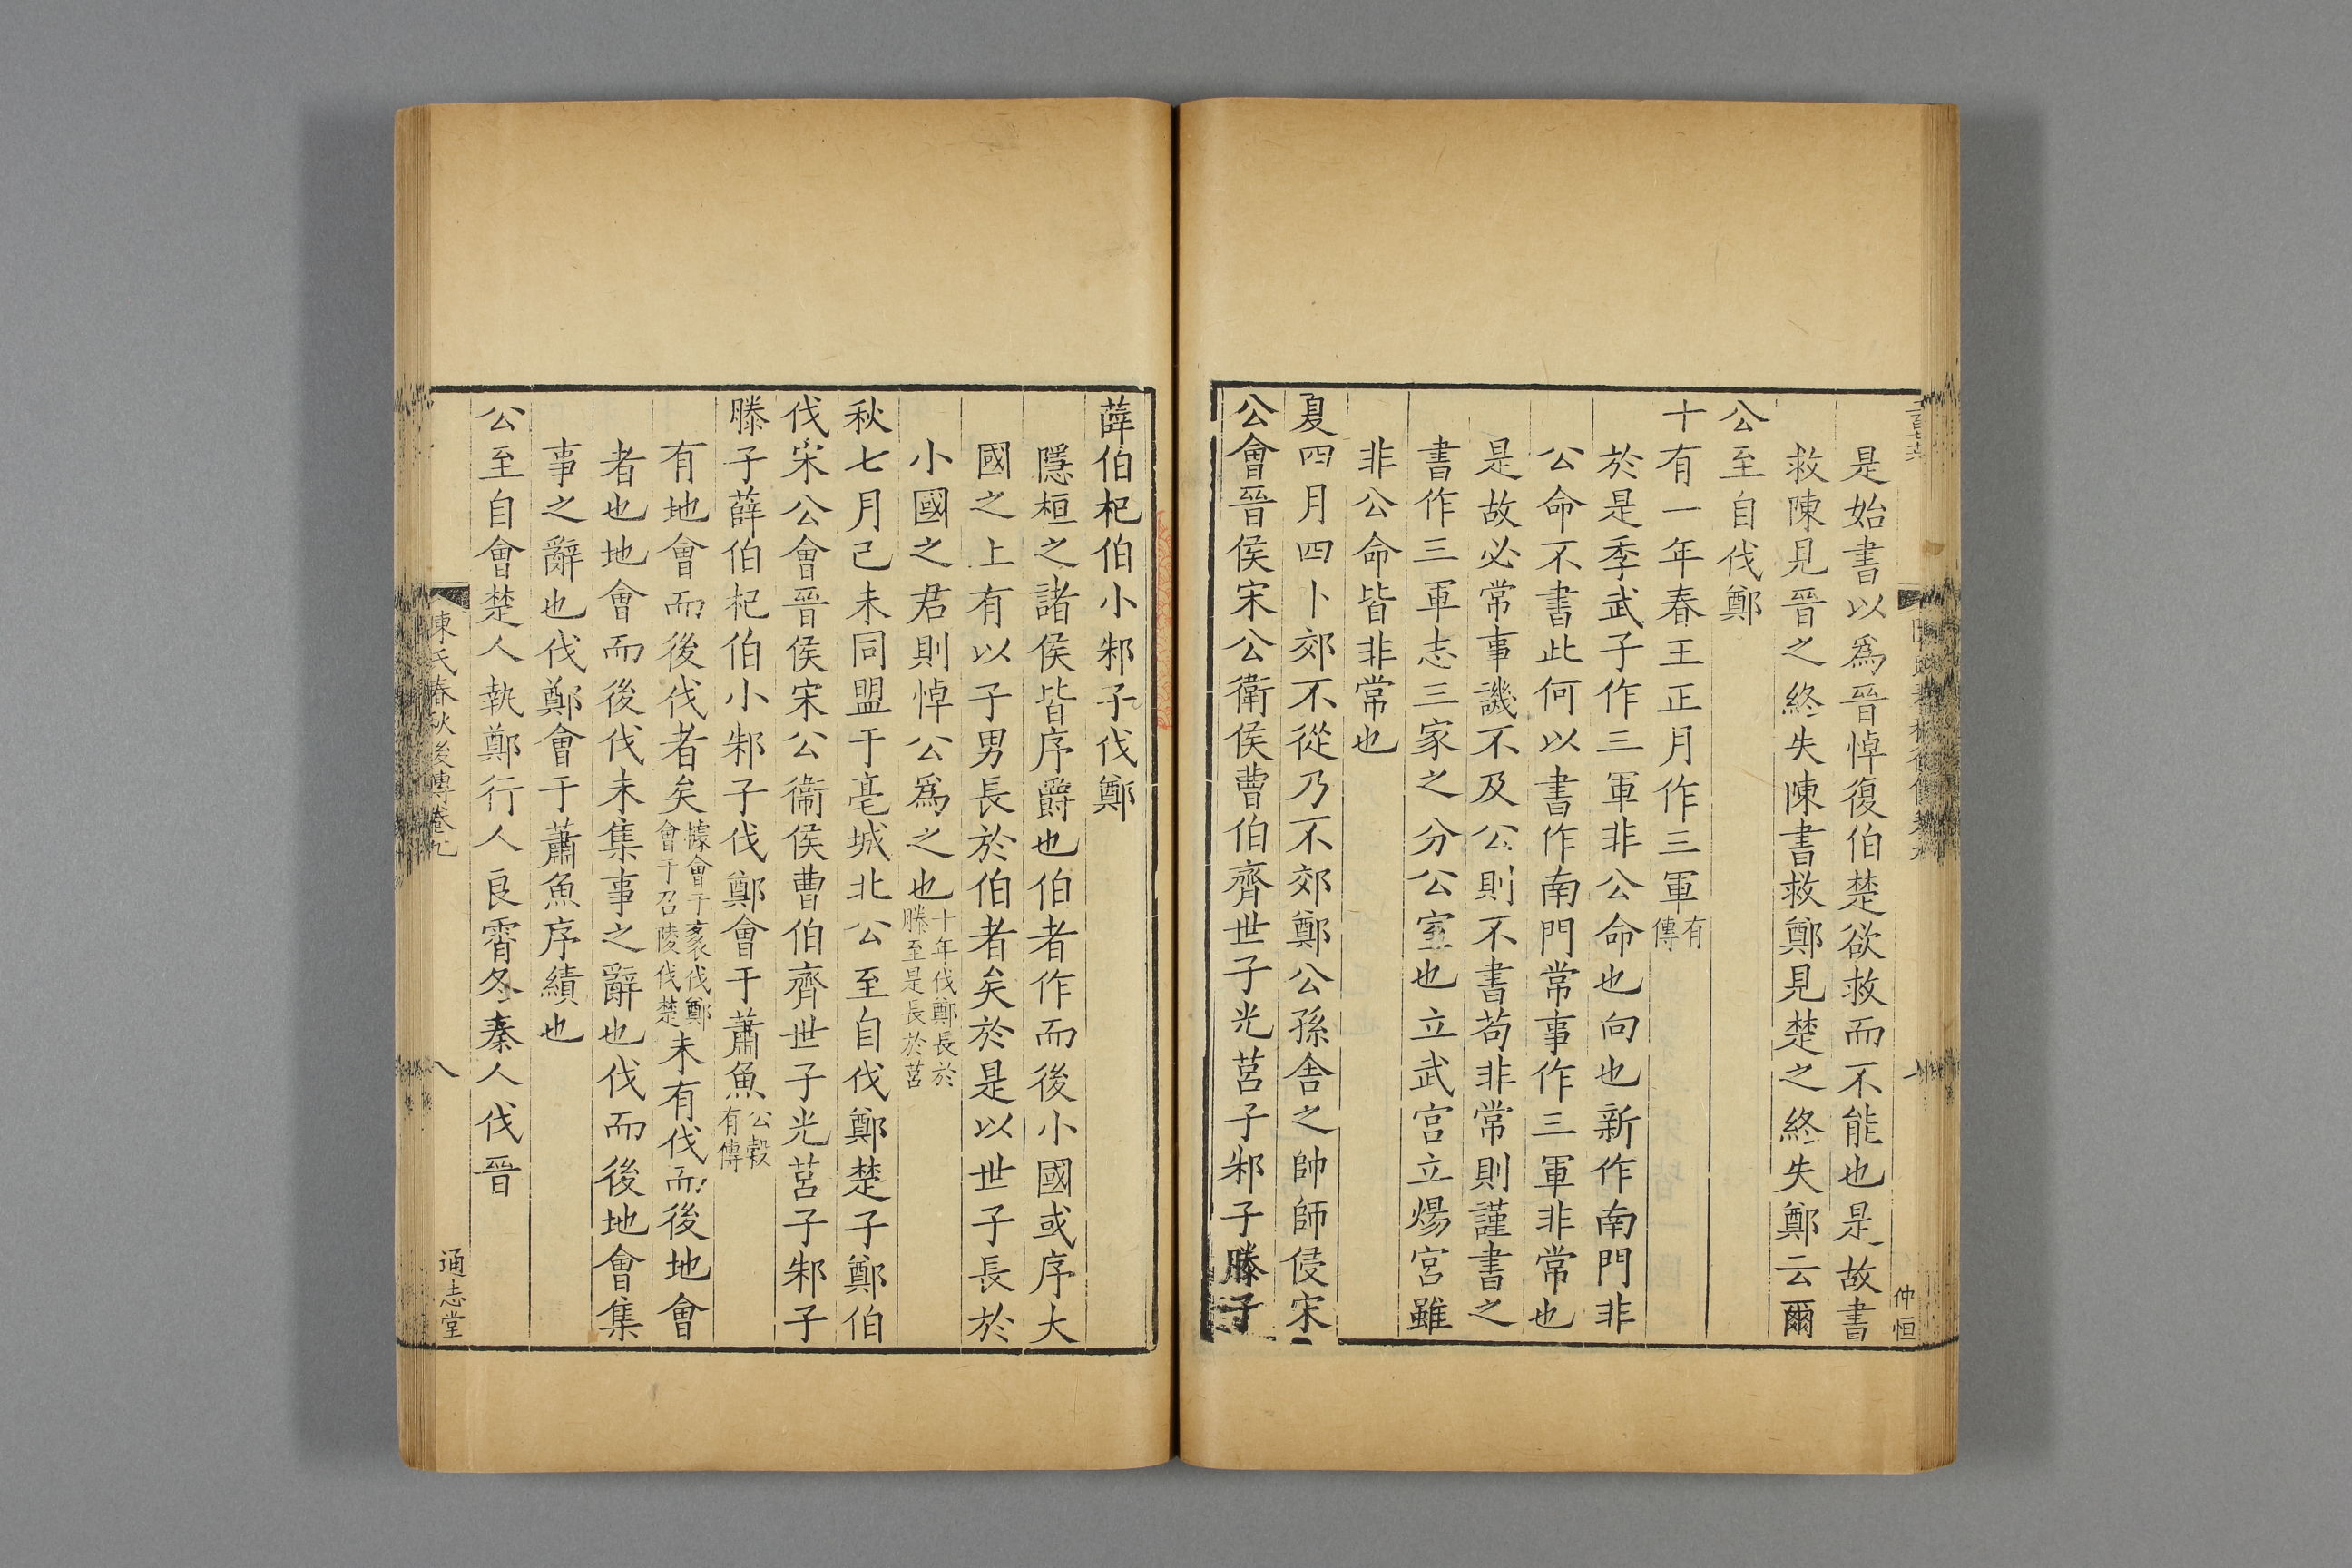 是始書以爲晉悼復伯楚欲救而不能也是故書
救陳見晉之終失陳書救鄭見楚之終失鄭云爾
公至自伐鄭
十有一年春王正月作三軍有傳
於是季武子作三軍非公命也向也新作南門非
公命不書此何以書作南門常事作三軍非常也
是故必常事譏不及公則不書苟非常則謹書之
書作三軍志三家之分公室也立武宮立煬宮雖
非公命皆非常也
夏四月四卜郊不從乃不郊鄭公孫舍之帥師侵宋
公會晉侯宋公衛侯曹伯齊世子光莒子邾子滕子
仲恒
薛伯杞伯小邾子伐鄭
隱桓之諸侯皆序爵也伯者作而後小國或序大
國之上有以子男長於伯者矣於是以世子長於
小國之君則悼公爲之也十年伐鄭長於滕至是長於莒
秋七月己未同盟于亳城北公至自伐鄭楚子鄭伯
伐宋公會晉侯宋公衞侯曹伯齊世子光莒子邾子
滕子薛伯杞伯小邾子伐鄭會于蕭魚公穀有傳
有地會而後伐者矣據會于袲伐鄭會于召陵伐楚未有伐而後地會
者也地會而後伐未集事之辭也伐而後地會集
事之辭也伐鄭會于蕭魚序績也
公至自會楚人執鄭行人良霄冬秦人伐晉
陳氏春秋後傳卷九
八
通志堂